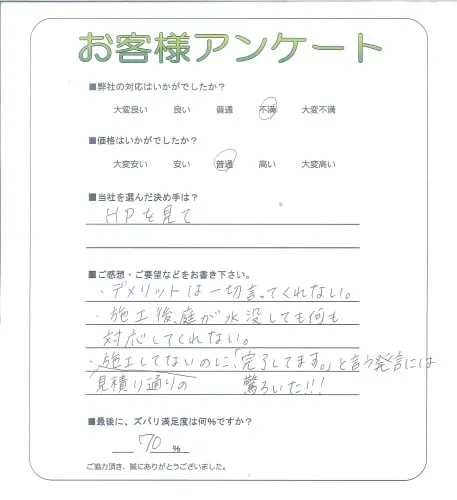 お客様アンケート
■弊社の対応はいかがでしたか？
大変良い 良い 普通 不満 大変不満
■価格はいかがでしたか？
大変安い 安い 普通 高い 大変高い
■当社を選んだ決め手は？
HPを見て
■ご感想・ご要望などをお書き下さい。
・デメリットは一切言ってくれない。
・施工後、庭が水没しても何も
対応してくれない。
・施工してないのに、「完了してます。」と言う発言には
見積り通りの 驚ろいた!!!
■最後に、ズバリ満足度は何％ですか？
70 %
ご協力頂き、誠にありがとうございました。